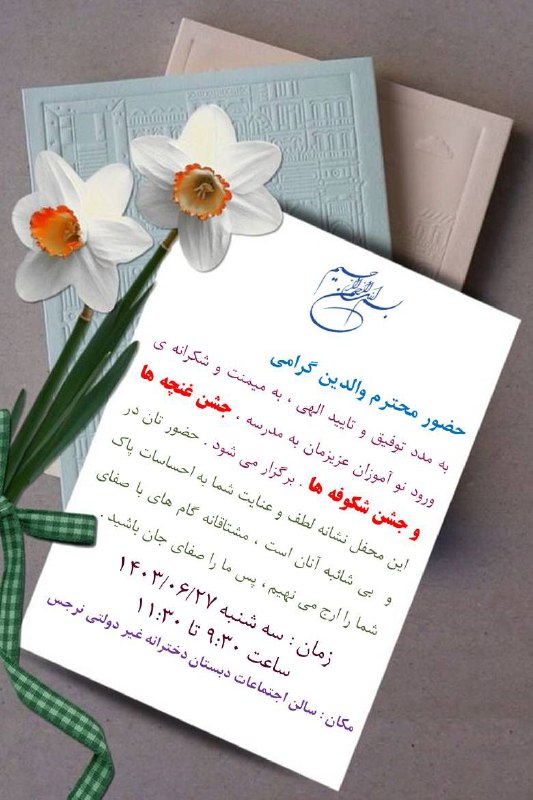 بسم الله الرحمن الرحیم
حضور محترم والدین گرامی
به مدد توفیق و تایید الهی ، به میمنت و شکرانه ی
ورود نو آموزان عزیزمان به مدرسه ، جشن غنچه ها
و جشن شکوفه ها . برگزار می شود . حضور تان در
این محفل نشانه لطف و عنایت شما به احساسات پاک
و بی شائبه آنان است ، مشتاقانه گام های با صفای
شما را ارج می نهیم ، پس ما را صفای جان باشید .
زمان : سه شنبه ۱۴۰۳/۰۶/۲۷
ساعت ۹:۳۰ تا ۱۱:۳۰
مکان : سالن اجتماعات دبستان دخترانه غیر دولتی نرجس